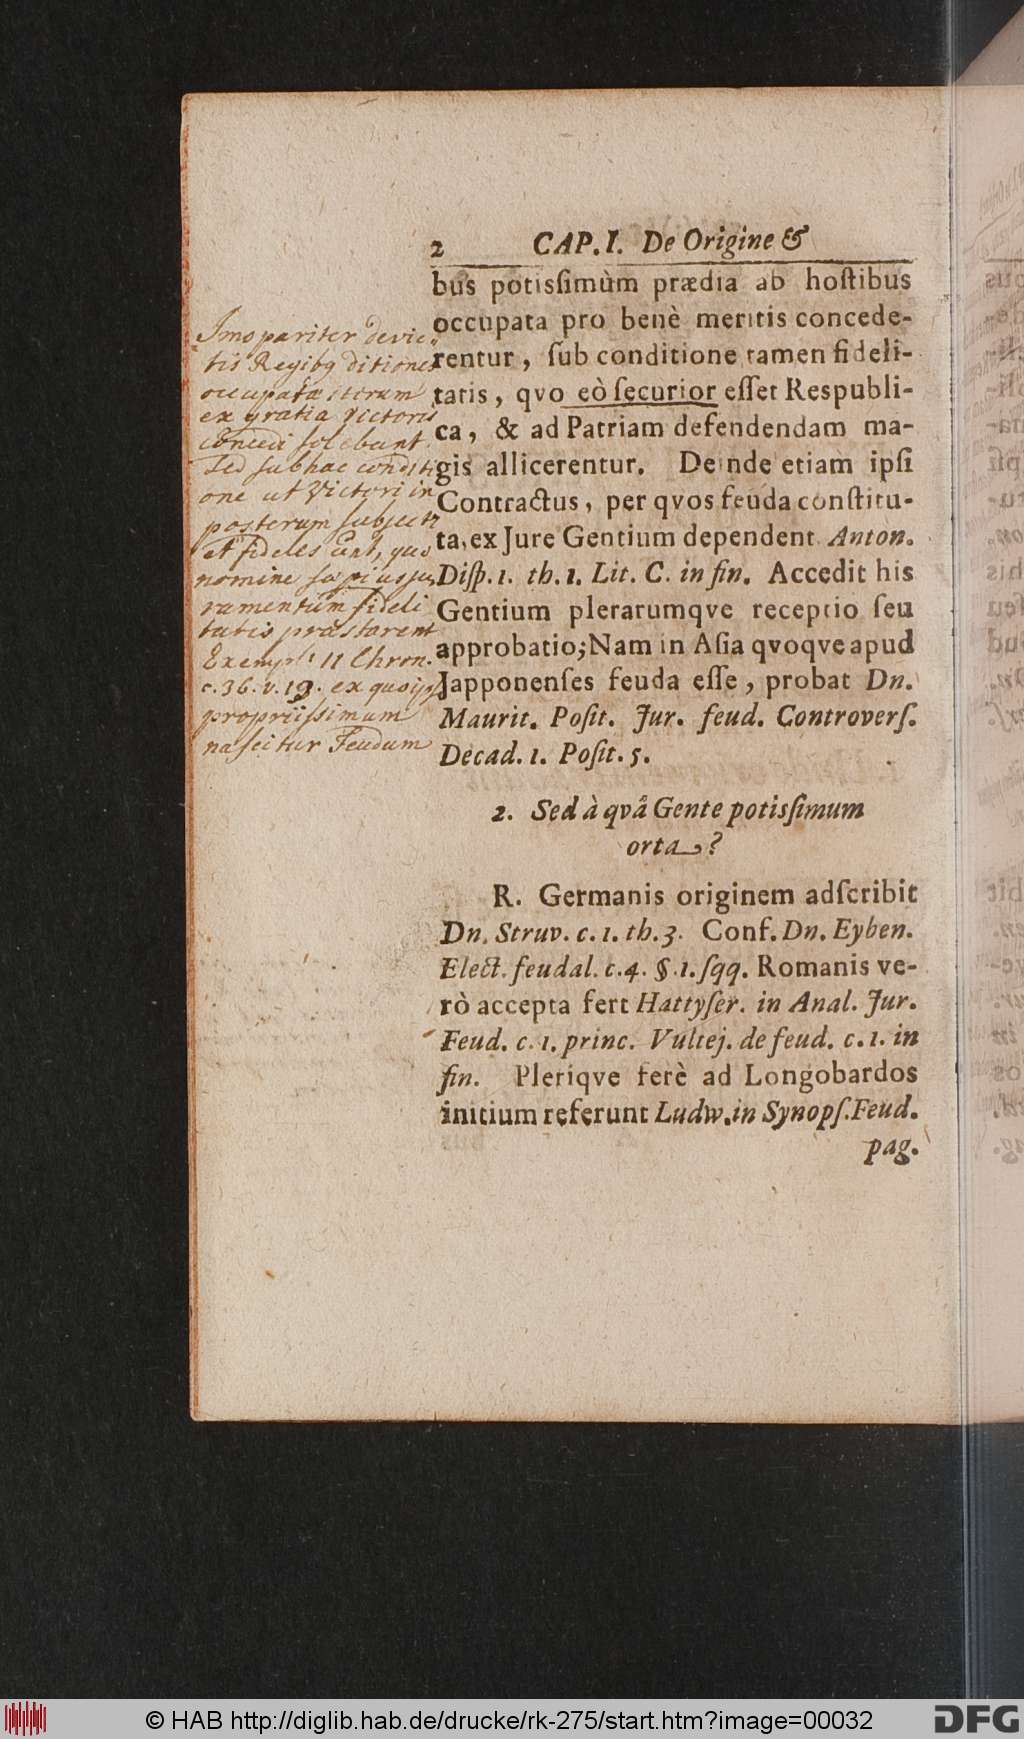 2 CAP. I. De Origine &
bus potisſimùm prædia ab hoſtibus
occupata pro benè meritis concede-
rentur, ſub conditione tamen fideli-
tatis, qvo eò ſecurior eſſet Respubli-
ca, & ad Patriam defendendam ma-
gis allicerentur. Deinde etiam ipſi
Contractus, per qvos feuda conſtitu-
ta, ex Jure Gentium dependent. Anton.
Diſp. 1. th. 1. Lit. C. in fin. Accedit his
Gentium plerarumqve receptio ſeu
approbatio; Nam in Aſia qvoqve apud
Japponenſes feuda eſſe, probat Dn.
Maurit. Poſit. Jur. feud. Controverſ.
Decad. 1. Poſit. 5.
2. Sed à qvâ Gente potisſimum
orta?
R. Germanis originem adſcribit
Dn. Struv. c. 1. th. 3. Conf. Dn. Eyben.
Elect. feudal. c. 4. §. 1. ſqq. Romanis ve-
rò accepta fert Hattyſer. in Anal. Jur.
Feud. c. 1. princ. Vultej. de feud. c. 1. in
fin. Pleriqve ferè ad Longobardos
initium referunt Ludw. in Synopſ. Feud.
pag.
Imo pariter devic-
tis Regibq ditiones
occupatae iterum
ex gratia victoris
concedi solebant
sed sub hac conditi
one ut Victori in
posterum subjecti
et fideles sint, quo
nomine saepius ju
ramentum fideli
tatis praestarent
Exempl: II Chron.
c. 36. v. 13. ex quo
propriissimum
nascitur Feudum
© HAB http://diglib.hab.de/drucke/rk-275/start.htm?image=00032
DFG